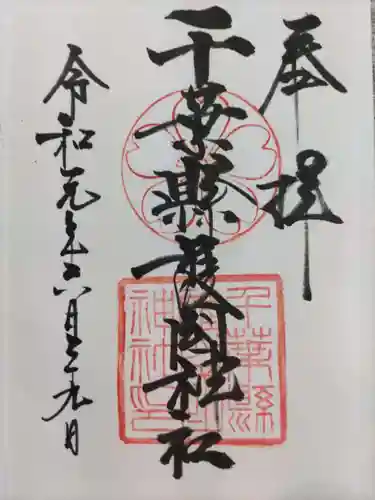 奉拝
千葉縣護國神社
令和元年六月二十九日
千葉縣